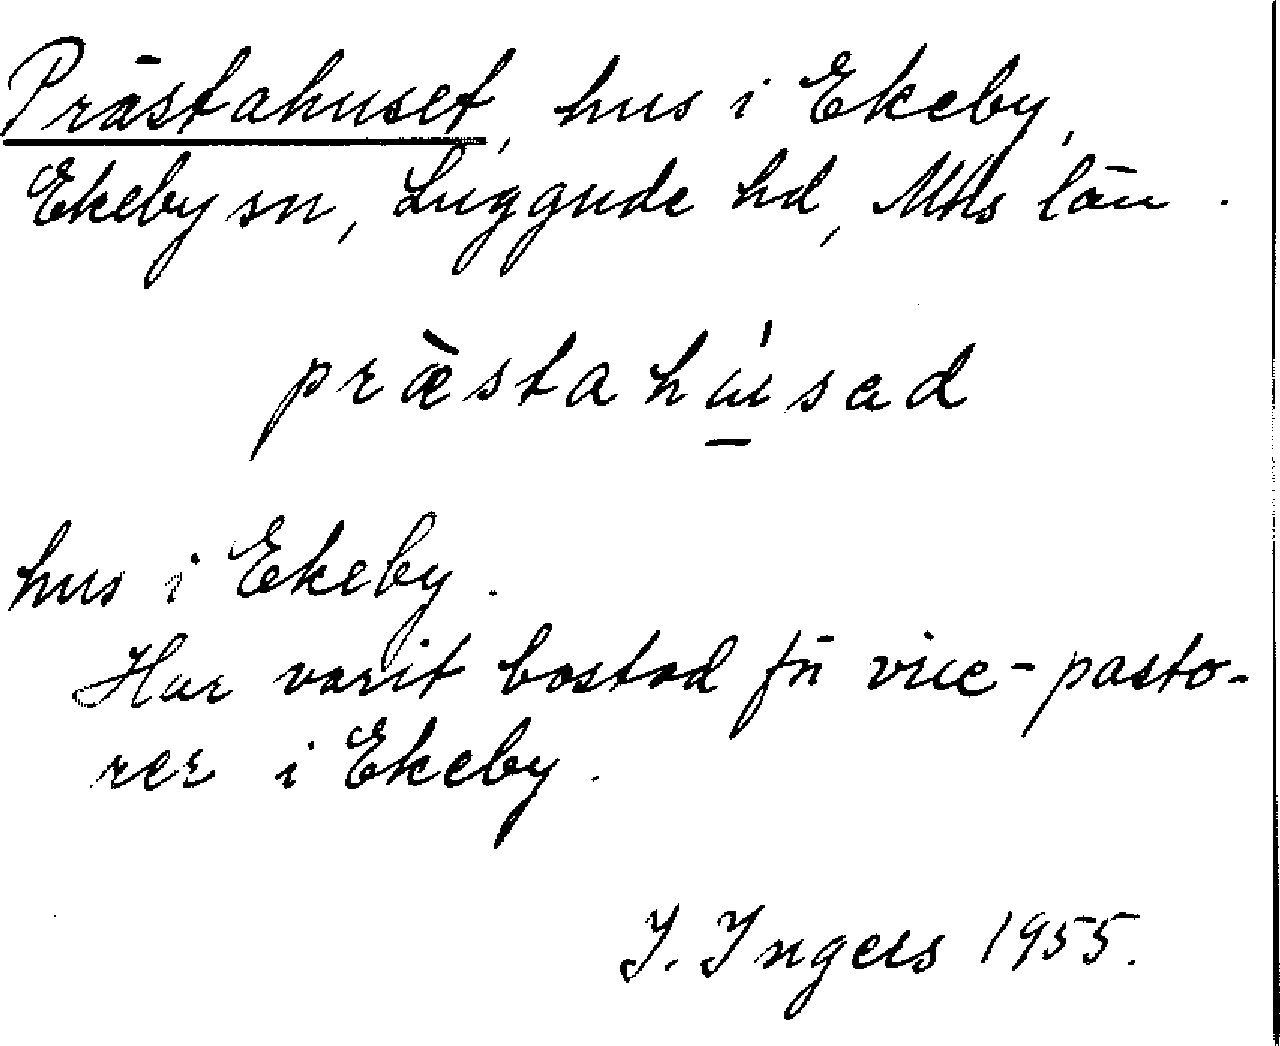 Prästahuset, hus i Ekeby,
Ekeby sn, Luggude hd, Mhs län.
præ̀stahúsad
hus i Ekeby.
Har varit bostad för vice-pasto-
rer i Ekeby.
I. Ingers 1955.